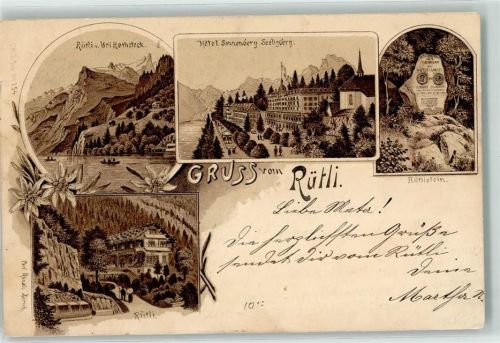 Rütli u. Uri Rothstock.
Hôtel Sonnenberg Seelisberg.
Rütlistein.
GRUSS vom Rütli.
Rütli.
Liebe Meta!
Die herzlichsten Grüße
sendet dir vom Rütli
Deine
Martha